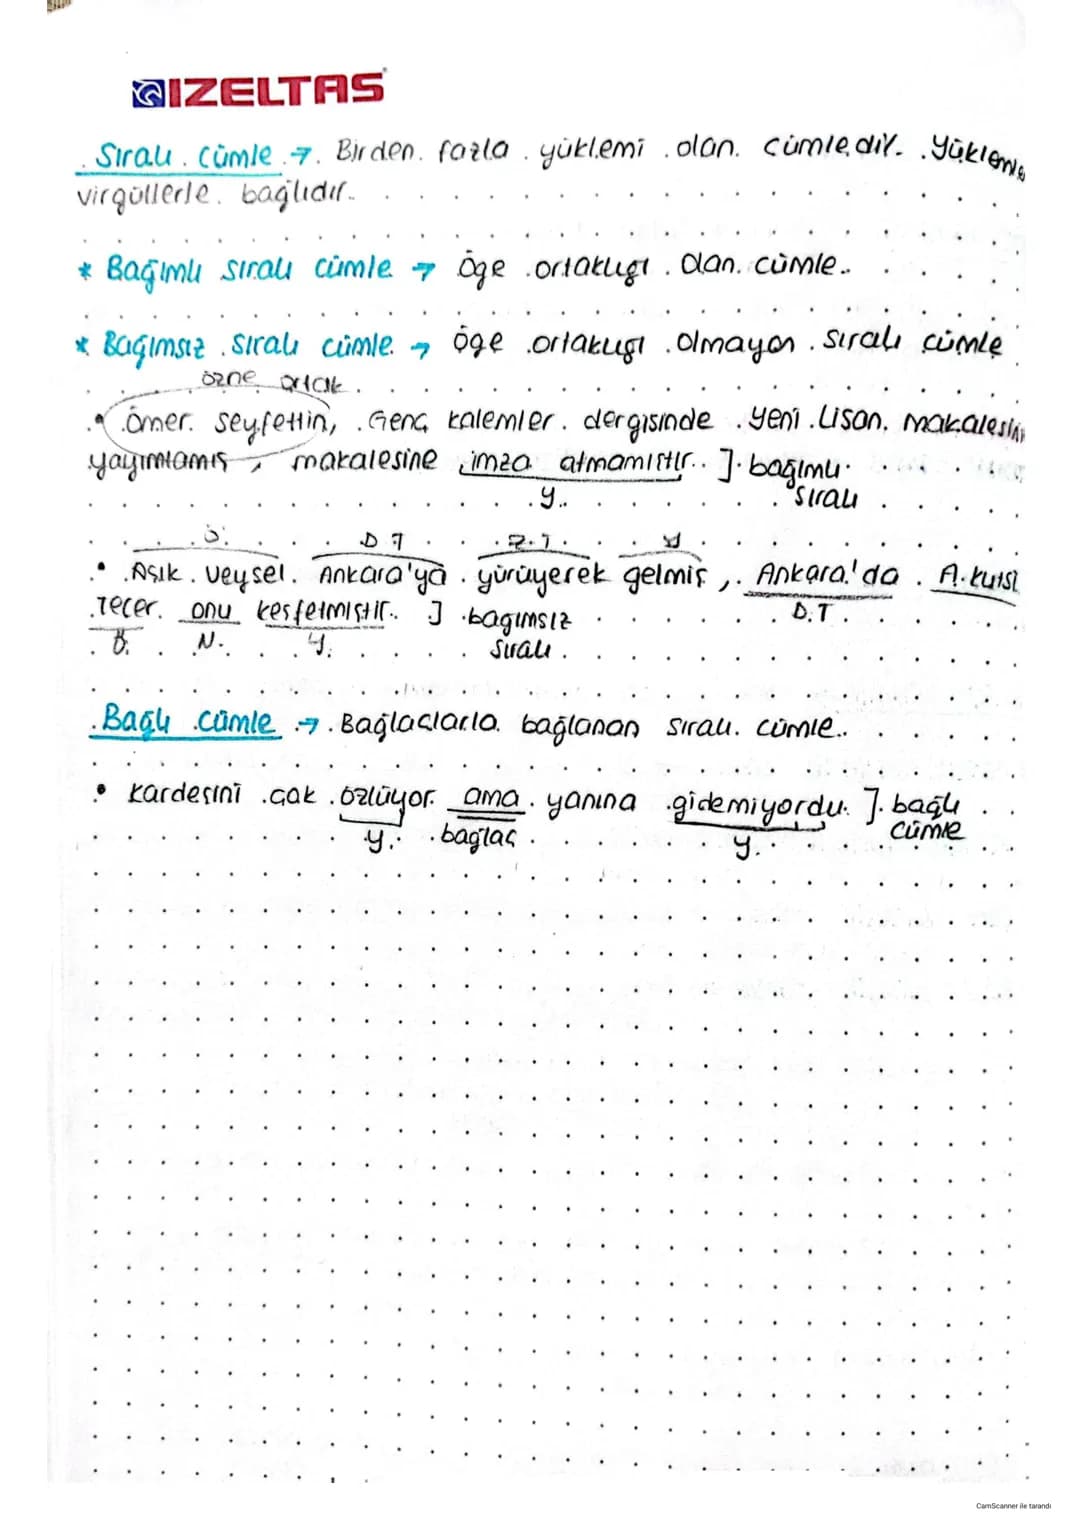 IZELTAS
Sıralı cümle → Birden fazla yüklemi olan cümledir. Yüklemle
virgüllerle bağlıdır.
* Bağımlı sıralı cümle → öge ortaklığı olan cümle.
* Bağımsız sıralı cümle → öge ortaklığı olmayan sıralı cümle
özne ortak
• Ömer Seyfettin, Genç kalemler dergisinde Yeni Lisan makalesini
yayımlamış, makalesine imza atmamıştır. ] bağımlı
y. sıralı
Ö. D T Z.T. y
• Aşık Veysel Ankara'ya yürüyerek gelmiş, Ankara'da A. Kutsi
Tecer onu keşfetmiştir. ] bağımsız D.T.
Ö. N. y. sıralı
Bağlı cümle → Bağlaçlarla bağlanan sıralı cümle.
• Kardeşini çok özlüyor ama yanına gidemiyordu. ] bağlı
y. bağlaç y. cümle
CamScanner ile tarandı